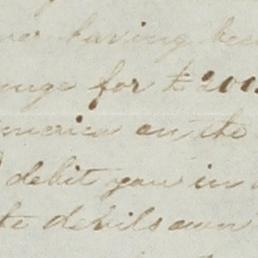 having bee
nge for £ 200
merica on the
debit you in
te devils own